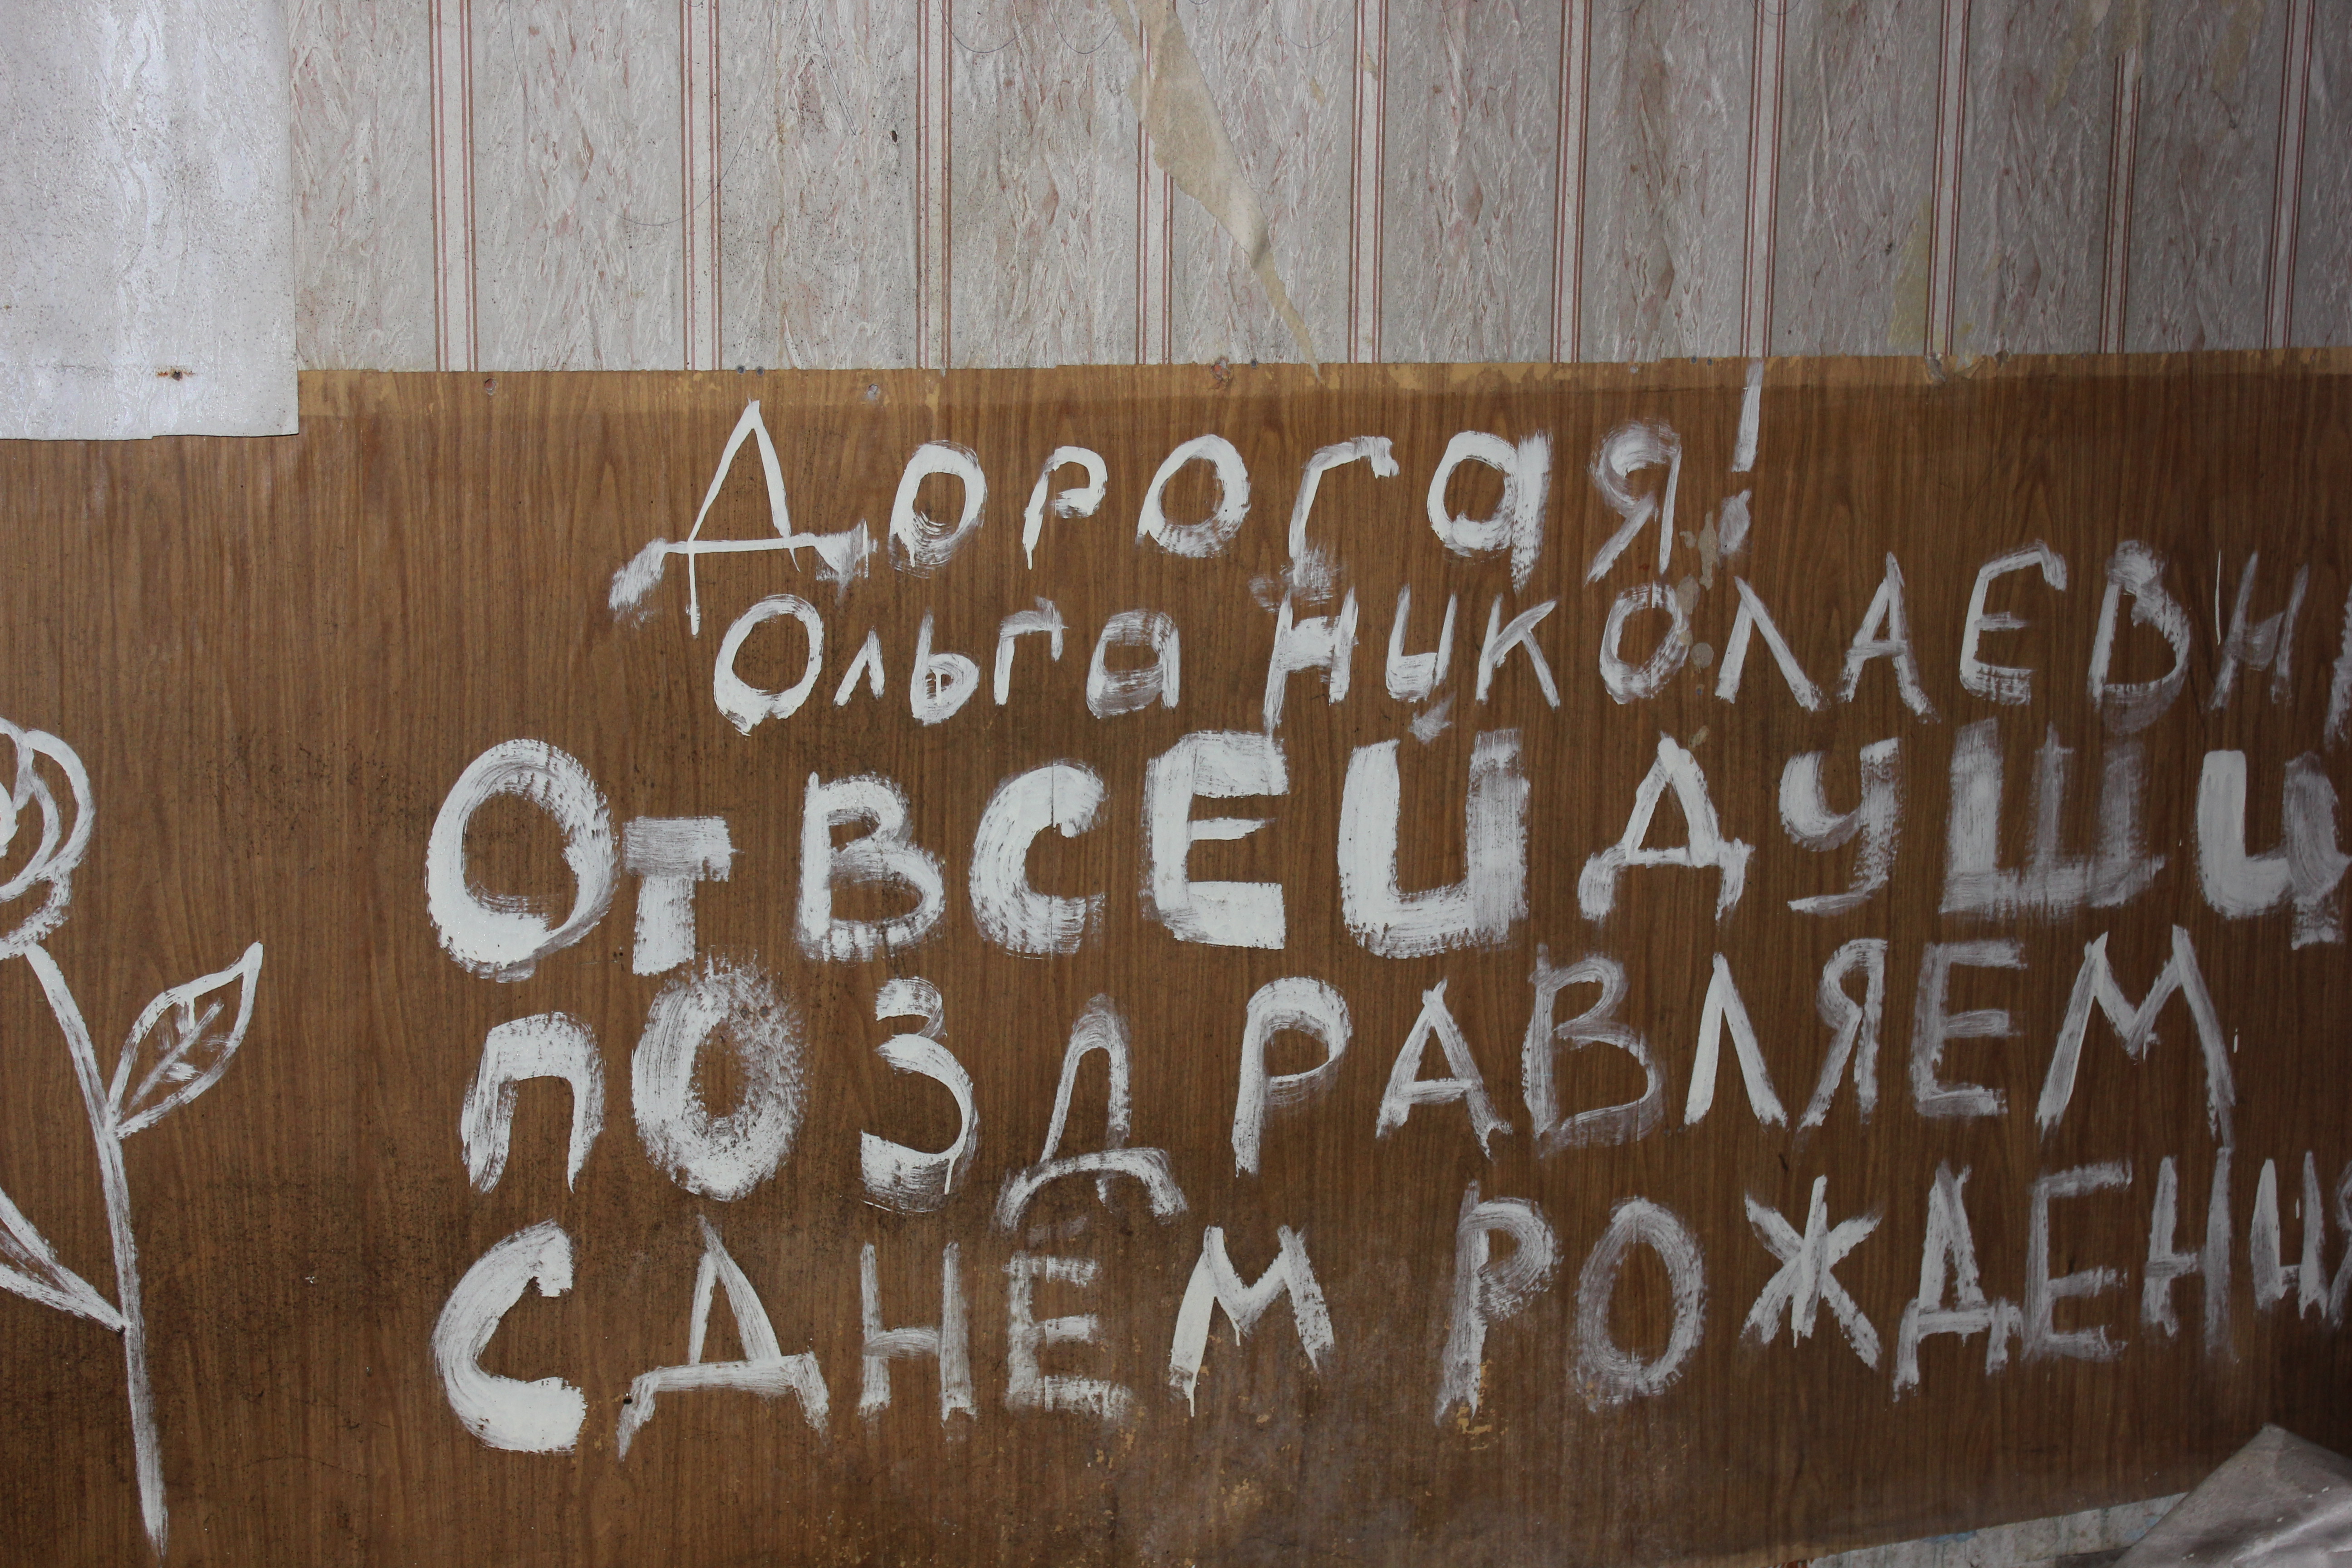 Дорогая!
Ольга НИКОЛАЕВН
ОТ ВСЕЙ ДУШИ
ПОЗДРАВЛЯЕМ
С ДНЕМ РОЖДЕНИ